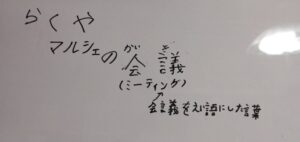 らくや
マルシェの会議
(ミーティング)
↑
会議を英語にした言葉